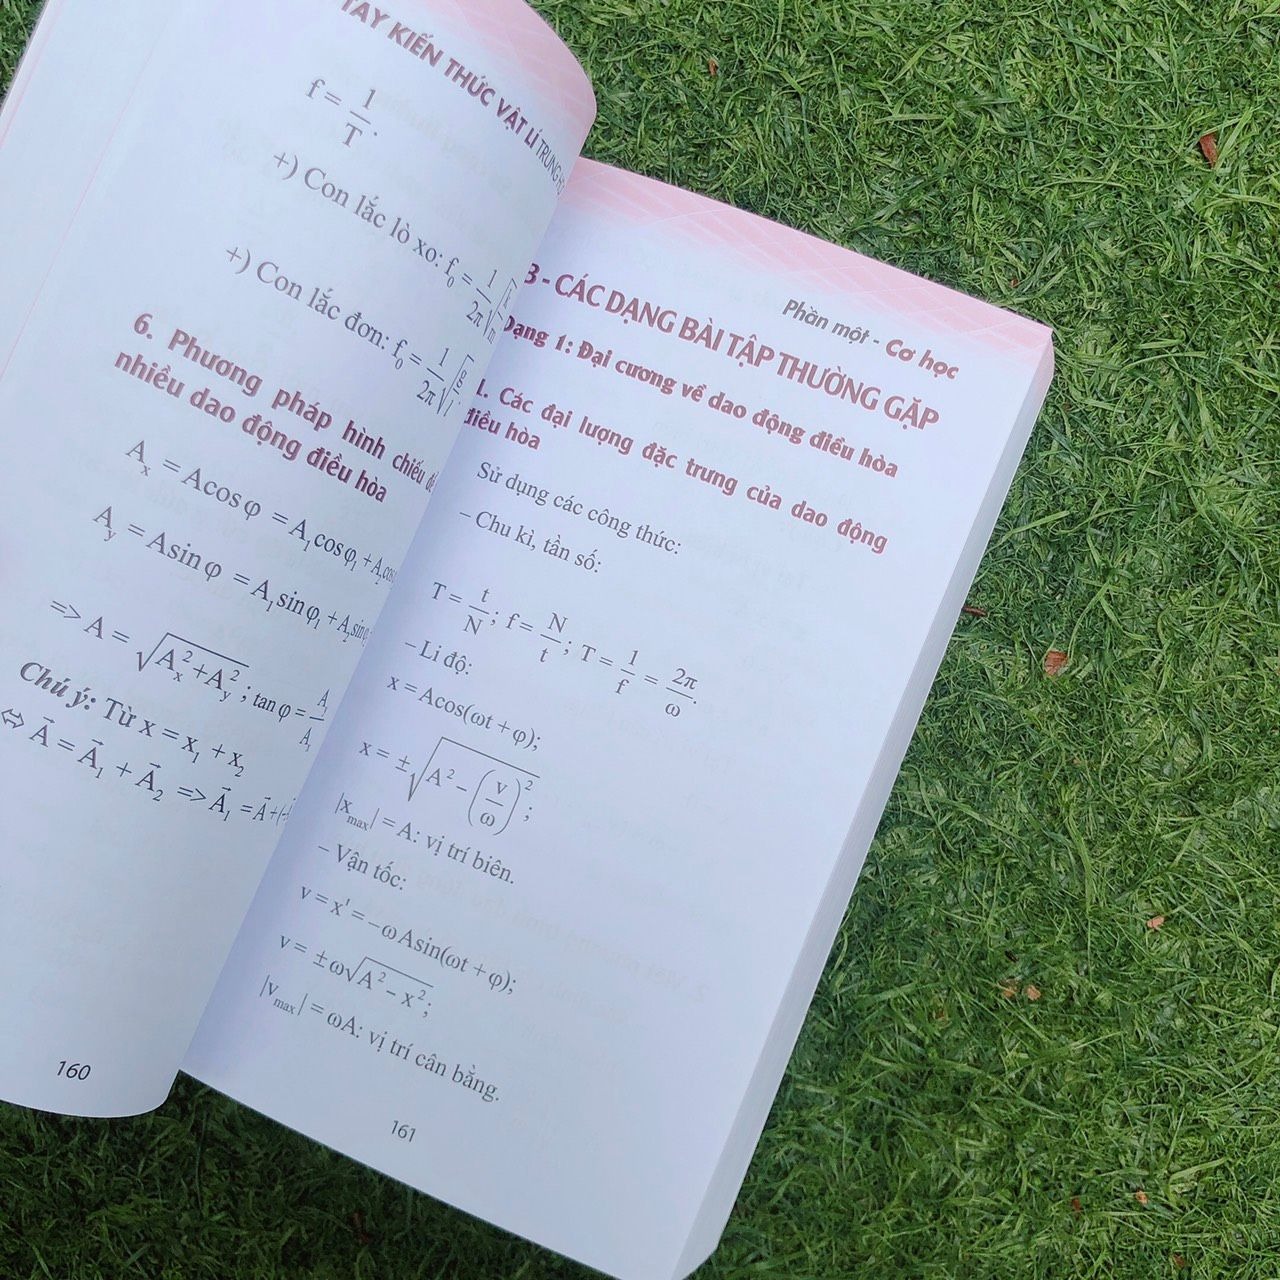 TAY KIẾN THỨC VẬT LÍ
f = 1/T.
+) Con lắc lò xo: f₀ = 1/2π √k/m
+) Con lắc đơn: f₀ = 1/2π √g/l
6. Phương pháp hình chiếu
nhiều dao động điều hòa
Aₓ = Acosφ = A₁cosφ₁ +
A_y = Asinφ = A₁sinφ₁ +
=> A = √(Aₓ² + A_y²); tanφ =
Chú ý: Từ x = x₁ + x₂
⇔ A⃗ = A⃗₁ + A⃗₂ => A⃗₁ = A⃗ +
160
Phần một - Cơ học
3 - CÁC DẠNG BÀI TẬP THƯỜNG GẶP
Dạng 1: Đại cương về dao động điều hòa
1. Các đại lượng đặc trưng của dao động
điều hòa
Sử dụng các công thức:
– Chu kì, tần số:
T = t/N; f = N/t; T = 1/f = 2π/ω.
– Li độ:
x = Acos(ωt + φ);
x = ±√(A² − (v/ω)²);
|x_max| = A: vị trí biên.
– Vận tốc:
v = x' = −ωAsin(ωt + φ);
v = ±ω√(A² − x²);
|v_max| = ωA: vị trí cân bằng.
161